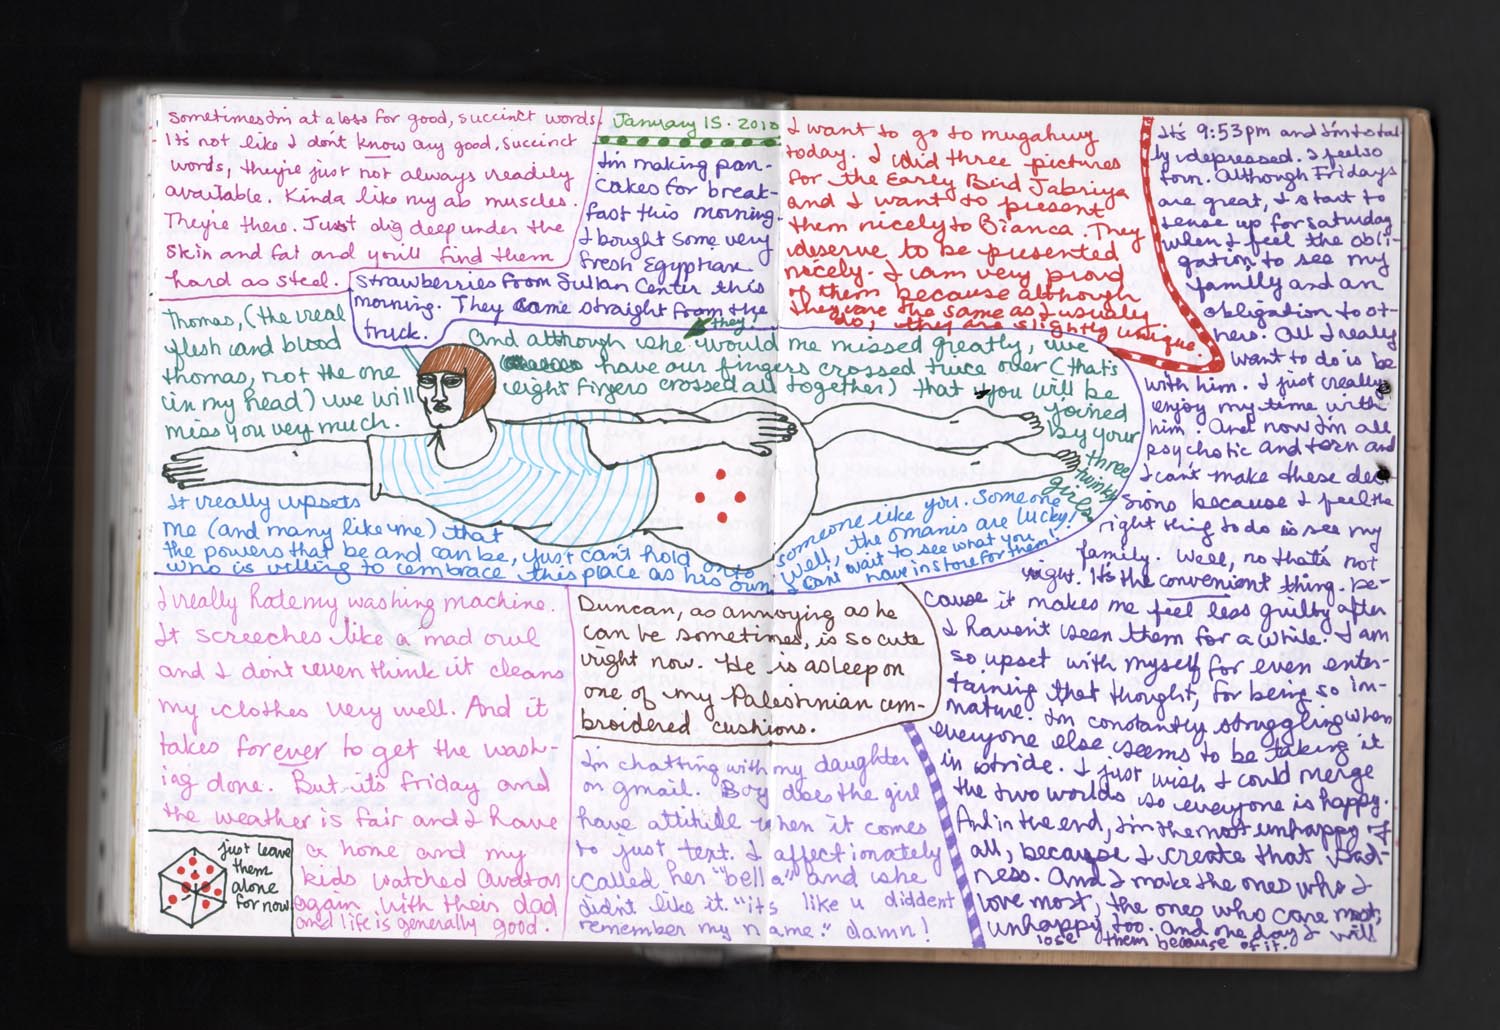 sometimes I'm at a loss for good, succinct words.
It's not like I don't know any good, succinct
words, they're just not always readily
available. Kinda like my ab muscles.
They're there. Just dig deep under the
skin and fat and you'll find them
hard as steel.
January 15. 2010
I'm making pan-
cakes for break-
fast this morning.
I bought some very
fresh Egyptian
strawberries from Sultan Center this
morning. They came straight from the
truck.
I want to go to mugahwy
today. I did three pictures
for the Early Bird Jabriya
and I want to present
them nicely to Bianca. They
deserve to be presented
nicely. I am very proud
of them because although
they are the same as I usually
do, they are slightly unique.
It's 9:53pm and I'm total-
ly depressed. I feel so
torn. Although Fridays
are great, I start to
tense up for saturday
when I feel the obli-
gation to see my
family and an
obligation to ot-
hers. All I really
want to do is be
with him. I just really
enjoy my time with
him. And now I'm all
psychotic and torn and
I can't make these deci-
sions because I feel the
right thing to do is see my
family. Well, no that's not
right. It's the convenient thing. Be-
cause it makes me feel less guilty after
I haven't seen them for a while. I am
so upset with myself for even enter-
taining that thought, for being so im-
mature. I'm constantly struggling when
everyone else seems to be taking it
in stride. I just wish I could merge
the two worlds so everyone is happy.
And in the end, I'm the most unhappy of
all, because I create that sad-
ness. And I make the ones who I
love most, the ones who care most,
unhappy too. And one day I will
lose them because of it.
Thomas, (the real
flesh and blood
thomas, not the one
in my head) we will
miss you very much.
And although she would me missed greatly, we
they!
have our fingers crossed twice over (that's
eight fingers crossed all together) that you will be
joined
by your
three
twinky
girls
It really upsets
me (and many like me) that
the powers that be and can be, just can't hold onto
who is willing to embrace this place as his own
someone like you. Someone
Well, the omanis are lucky!
I can't wait to see what you
have in store for them!
I really hate my washing machine.
It screeches like a mad owl
and I don't even think it cleans
my clothes very well. And it
takes forever to get the wash-
ing done. But it's friday and
the weather is fair and I have
a home and my
kids watched Avatar
again with their dad
and life is generally good.
just leave
them
alone
for now
Duncan, as annoying as he
can be sometimes, is so cute
right now. He is asleep on
one of my Palestinian em-
broidered cushions.
I'm chatting with my daughter
on gmail. Boy does the girl
have attitude when it comes
to just text. I affectionately
called her "bella" and she
didn't like it. "its like u diddent
remember my name." damn!